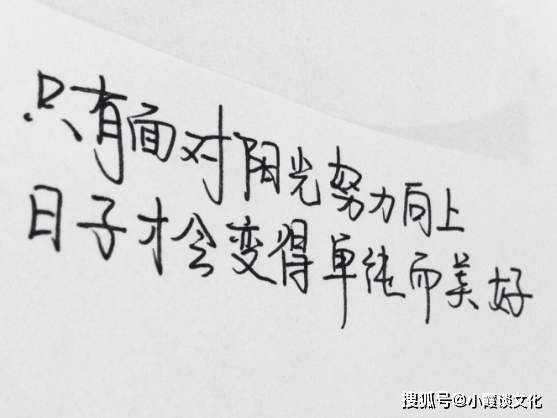 只有面对阳光努力向上
日子才会变得单纯而美好
搜狐号@小霞谈文化